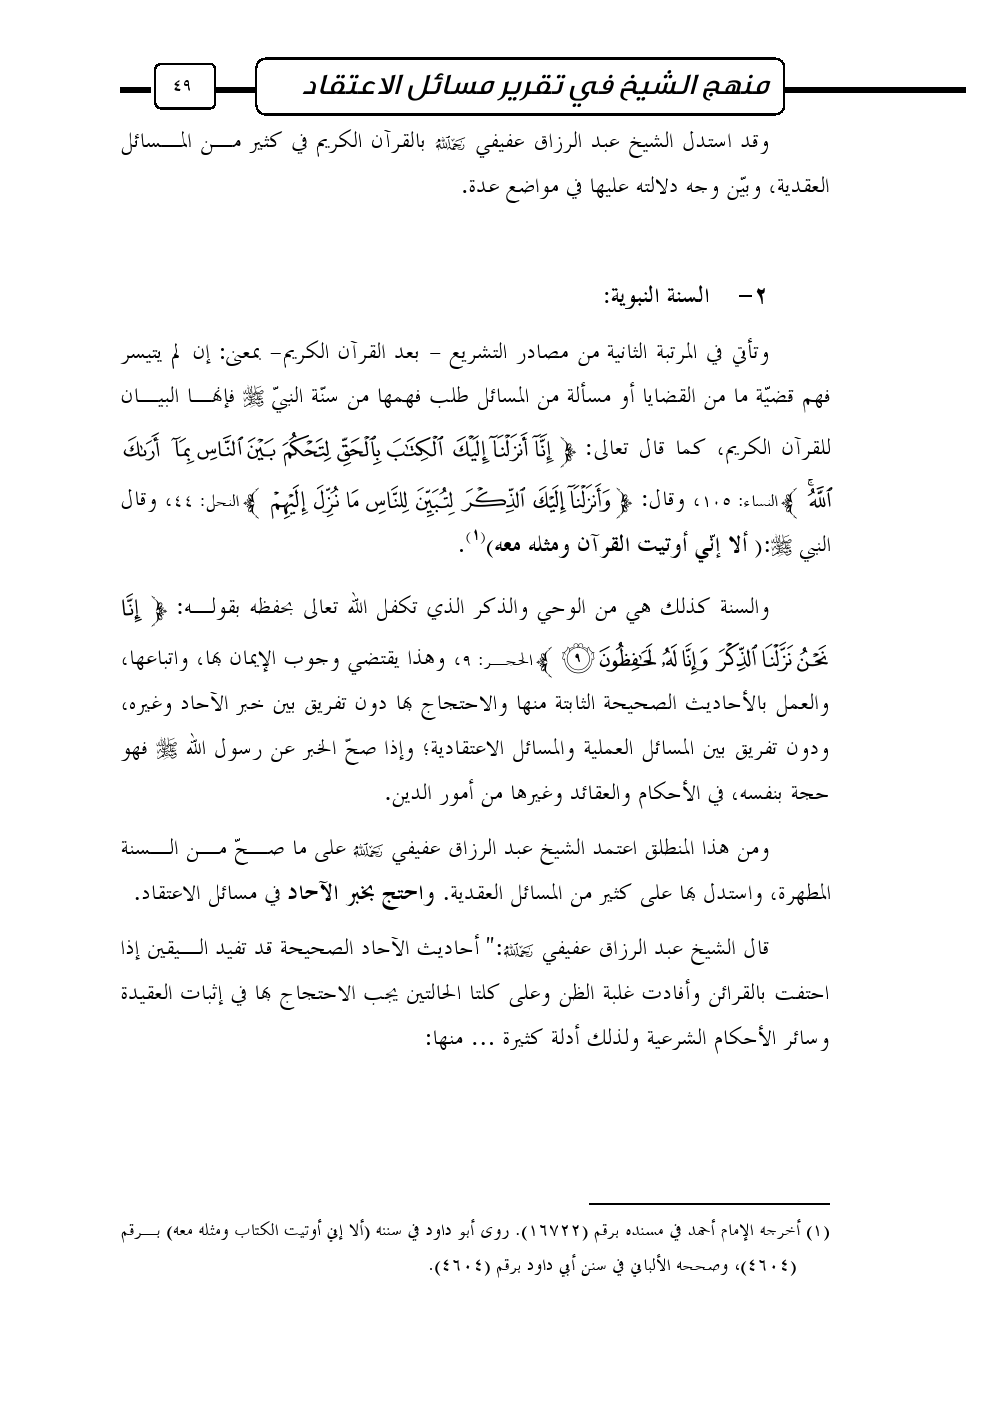 منهج الشيخ في تقرير مسائل الاعتقاد
٤٩
وقد استدل الشيخ عبد الرزاق عفيفي رحمه الله بالقرآن الكريم في كثير مـــن المـــسائل
العقدية، وبيّن وجه دلالته عليها في مواضع عدة.
٢- السنة النبوية:
وتأتي في المرتبة الثانية من مصادر التشريع – بعد القرآن الكريم– بمعنى: إن لم يتيسر
فهم قضيّة ما من القضايا أو مسألة من المسائل طلب فهمها من سنّة النبيّ ﷺ فإنهـــا البيـــان
للقرآن الكريم، كما قال تعالى: ﴿ إِنَّآ أَنزَلْنَآ إِلَيْكَ ٱلْكِتَٰبَ بِٱلْحَقِّ لِتَحْكُمَ بَيْنَ ٱلنَّاسِ بِمَآ أَرَىٰكَ
ٱللَّهُ ۚ ﴾ النساء: ١٠٥، وقال: ﴿ وَأَنزَلْنَآ إِلَيْكَ ٱلذِّكْرَ لِتُبَيِّنَ لِلنَّاسِ مَا نُزِّلَ إِلَيْهِمْ ﴾ النحل: ٤٤، وقال
النبي ﷺ:( ألا إنّي أوتيت القرآن ومثله معه)(١).
والسنة كذلك هي من الوحي والذكر الذي تكفل الله تعالى بحفظه بقولـــه: ﴿ إِنَّا
نَحْنُ نَزَّلْنَا ٱلذِّكْرَ وَإِنَّا لَهُۥ لَحَٰفِظُونَ ۝٩ ﴾ الحجـــر: ٩، وهذا يقتضي وجوب الإيمان بها، واتباعها،
والعمل بالأحاديث الصحيحة الثابتة منها والاحتجاج بها دون تفريق بين خبر الآحاد وغيره،
ودون تفريق بين المسائل العملية والمسائل الاعتقادية؛ وإذا صحّ الخبر عن رسول الله ﷺ فهو
حجة بنفسه، في الأحكام والعقائد وغيرها من أمور الدين.
ومن هذا المنطلق اعتمد الشيخ عبد الرزاق عفيفي رحمه الله على ما صـــحّ مـــن الـــسنة
المطهرة، واستدل بها على كثير من المسائل العقدية. واحتج بخبر الآحاد في مسائل الاعتقاد.
قال الشيخ عبد الرزاق عفيفي رحمه الله:" أحاديث الآحاد الصحيحة قد تفيد الـــيقين إذا
احتفت بالقرائن وأفادت غلبة الظن وعلى كلتا الحالتين يجب الاحتجاج بها في إثبات العقيدة
وسائر الأحكام الشرعية ولذلك أدلة كثيرة ... منها:
(١) أخرجه الإمام أحمد في مسنده برقم (١٦٧٢٢). روى أبو داود في سننه (ألا إني أوتيت الكتاب ومثله معه) بـــرقم
(٤٦٠٤)، وصححه الألباني في سنن أبي داود برقم (٤٦٠٤).